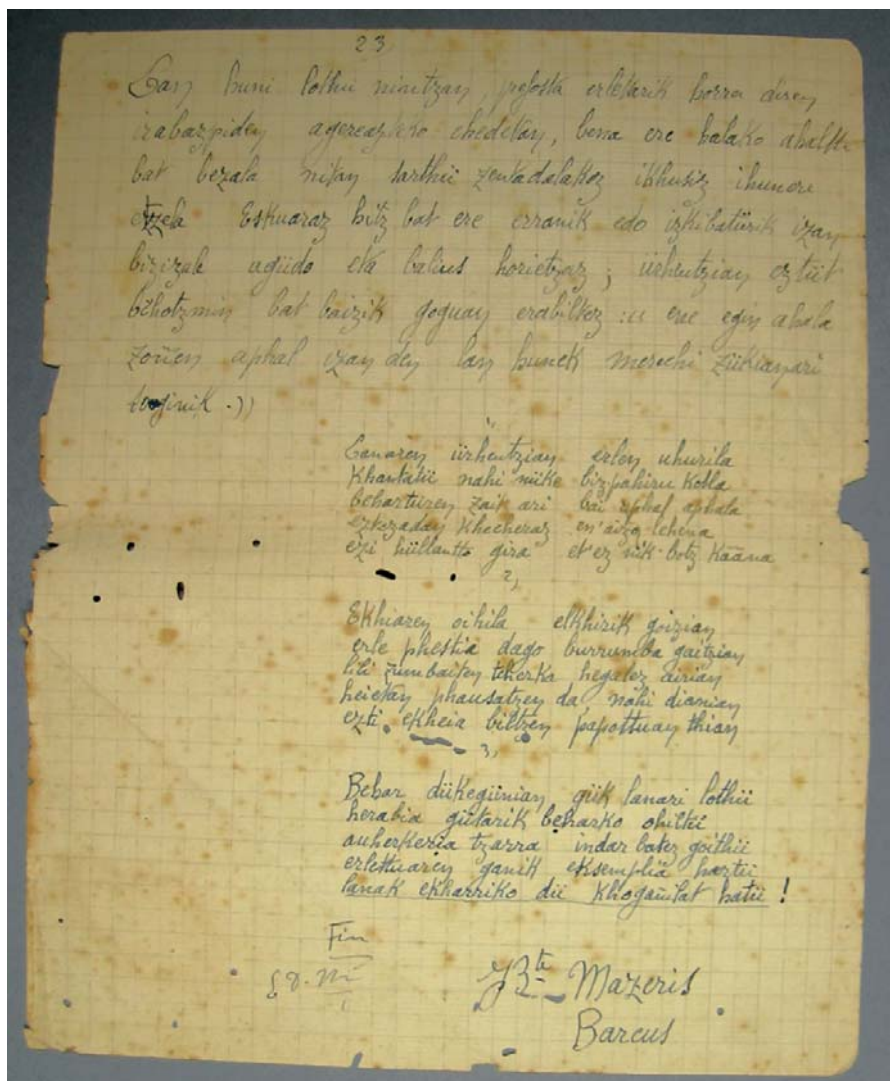 23
Lan huni lothu nintzan, prefosta erletarik horra diren
irabazpiden agereazteko chedetan, bena ere halako ahalke
bat bezala nitan sarthü zentadalakoz ikhusiz ihunere
etzela Eskuaraz hitz bat ere erranik edo izkibatürik izan
bizizale agüdo eta balius horietzaz; ürhentzian eztüt
bihotzmin bat baizik goguan erabilkez: ene egin ahala
zoüen aphal izan den lan hunek merechi zükianari
eginik.))
Lanaren ürhentzian erlen uhurila
Khantatü nahi nüke bizpahiru kobla
beharturen zaik ari bai aphal aphala
ezkezadan khecheraz en' aizo lehena
ezi hüllantto gira et'ez nik botz kaana
2,
Ekhiaren oihila elkhirik goizian
erle phestia dago burrumba gaitzian
lili zumbaiten tcherka hegalez airian
heietan phausatzen da nahi dianian
ezti ekheia biltzen papottuan thian
3,
Behar dükegünian gük lanari lothü
herabia gütarik beharko ohiltü
auherkeria tzarra indar batez goithü
erlettuaren ganik eksemplia hartü
lanak ekharriko dü khogaülat batü!
Fin
JB.te Mazeris
Barcus